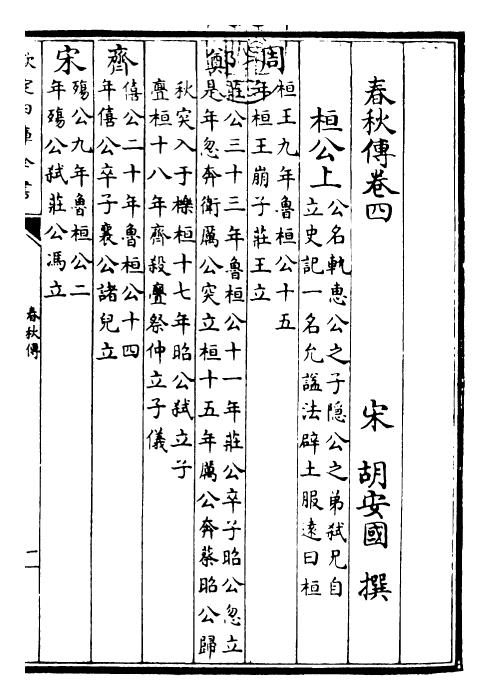 春秋傳卷四
宋 胡安國 撰
桓公上 公名軌惠公之子隱公之弟弒兄自
立史記一名允諡法辟土服遠曰桓
周 桓王九年魯桓公十五
年桓王崩子莊王立
鄭 莊公三十三年魯桓公十一年莊公卒子昭公忽立
是年忽奔衛厲公突立桓十五年厲公奔蔡昭公歸
秋突入于櫟桓十七年昭公弒立子
亹桓十八年齊殺亹祭仲立子儀
齊 僖公二十年魯桓公十四
年僖公卒子襄公諸兒立
宋 殤公九年魯桓公二
年殤公弒莊公馮立
春秋傳